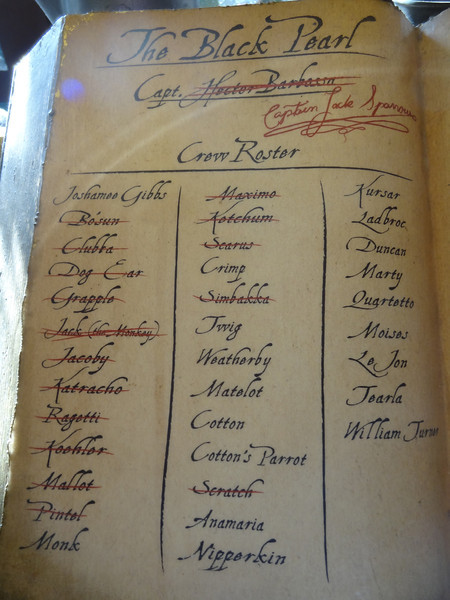 The Black Pearl
Capt. Hector Barbossa
Captain Jack Sparrow
Crew Roster
Joshamee Gibbs
Bo'sun
Clubba
Dog Ear
Grapple
Jack (the Monkey)
Jacoby
Katracho
Ragetti
Koehler
Mallot
Pintel
Monk
Maximo
Ketchum
Scarus
Crimp
Simbakka
Twig
Weatherby
Matelot
Cotton
Cotton's Parrot
Scratch
Anamaria
Nipperkin
Kursar
Ladbroc
Duncan
Marty
Quartetto
Moises
Le Jon
Tearla
William Turner